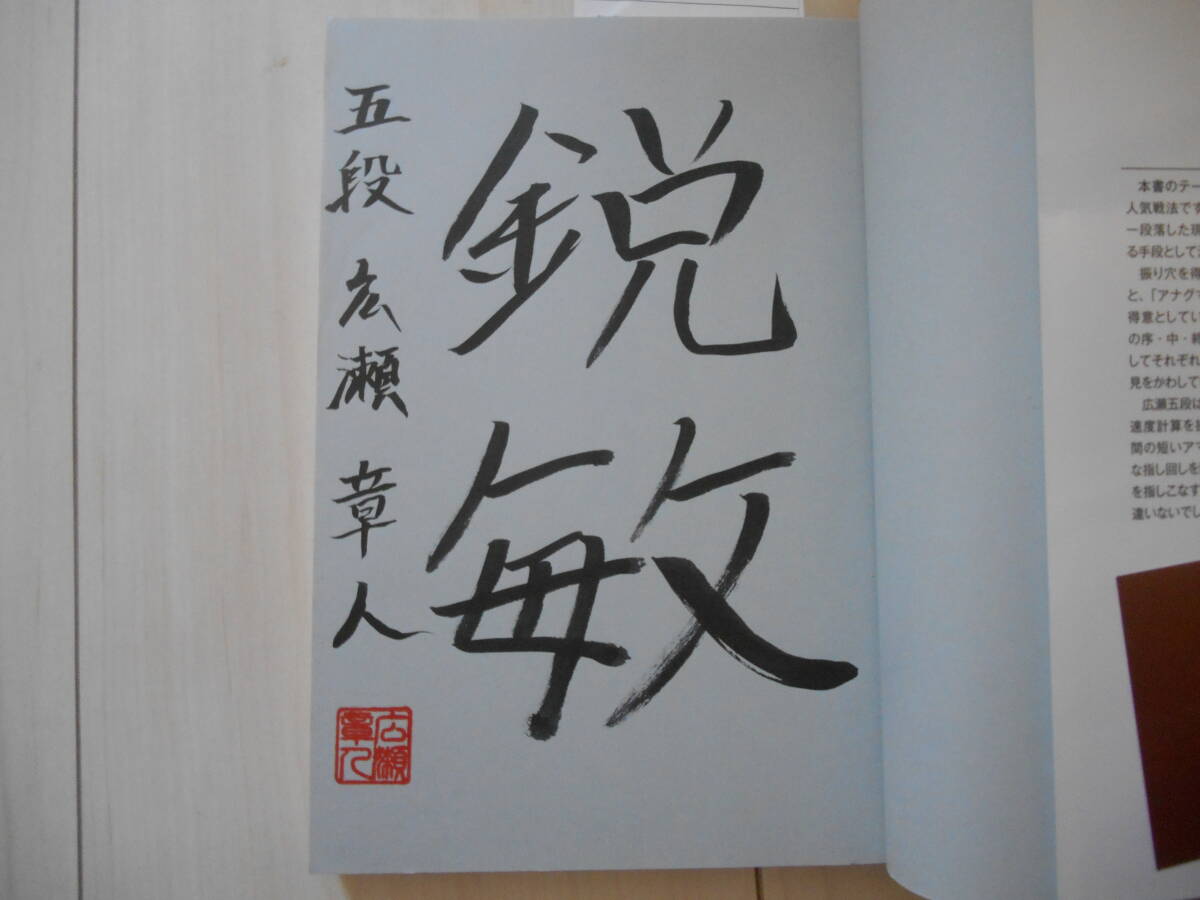 鋭敏
五段 広瀬 章人
広瀬
章人
本書のテー
人気戦法です
一段落した現
る手段として
振り穴を得
と、「アナグマ
得意としてい
の序・中・終
してそれぞれ
見をかわして
広瀬五段は
速度計算を
間の短いアマ
な指し回しを
を指しこなす
違いないでし